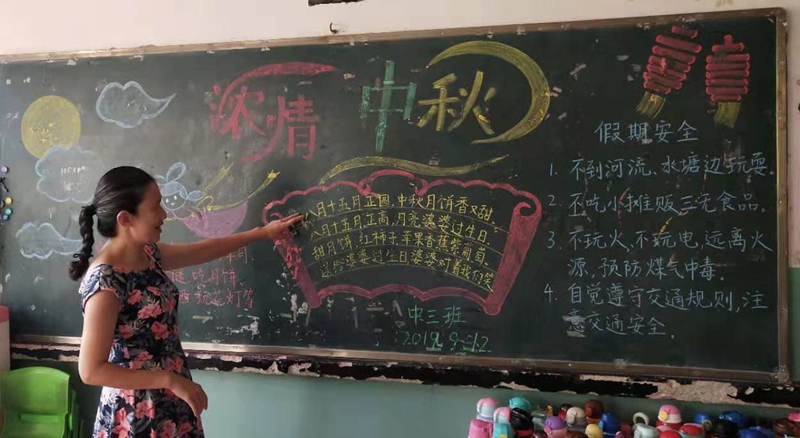 浓情中秋
八月十五月正圆,中秋月饼香又甜.
八月十五月正高,月亮婆婆过生日.
甜月饼,红柿子,苹果香蕉紫葡萄.
送给婆婆过生日婆婆对着我们笑
中三班
2019.9.12.
月.
吃月饼.
玩花灯等
假期安全
1. 不到河流.水塘边玩耍.
2. 不吃小摊贩三无食品.
3. 不玩火,不玩电,远离火
源,预防煤气中毒.
4. 自觉遵守交通规则,注
意交通安全.